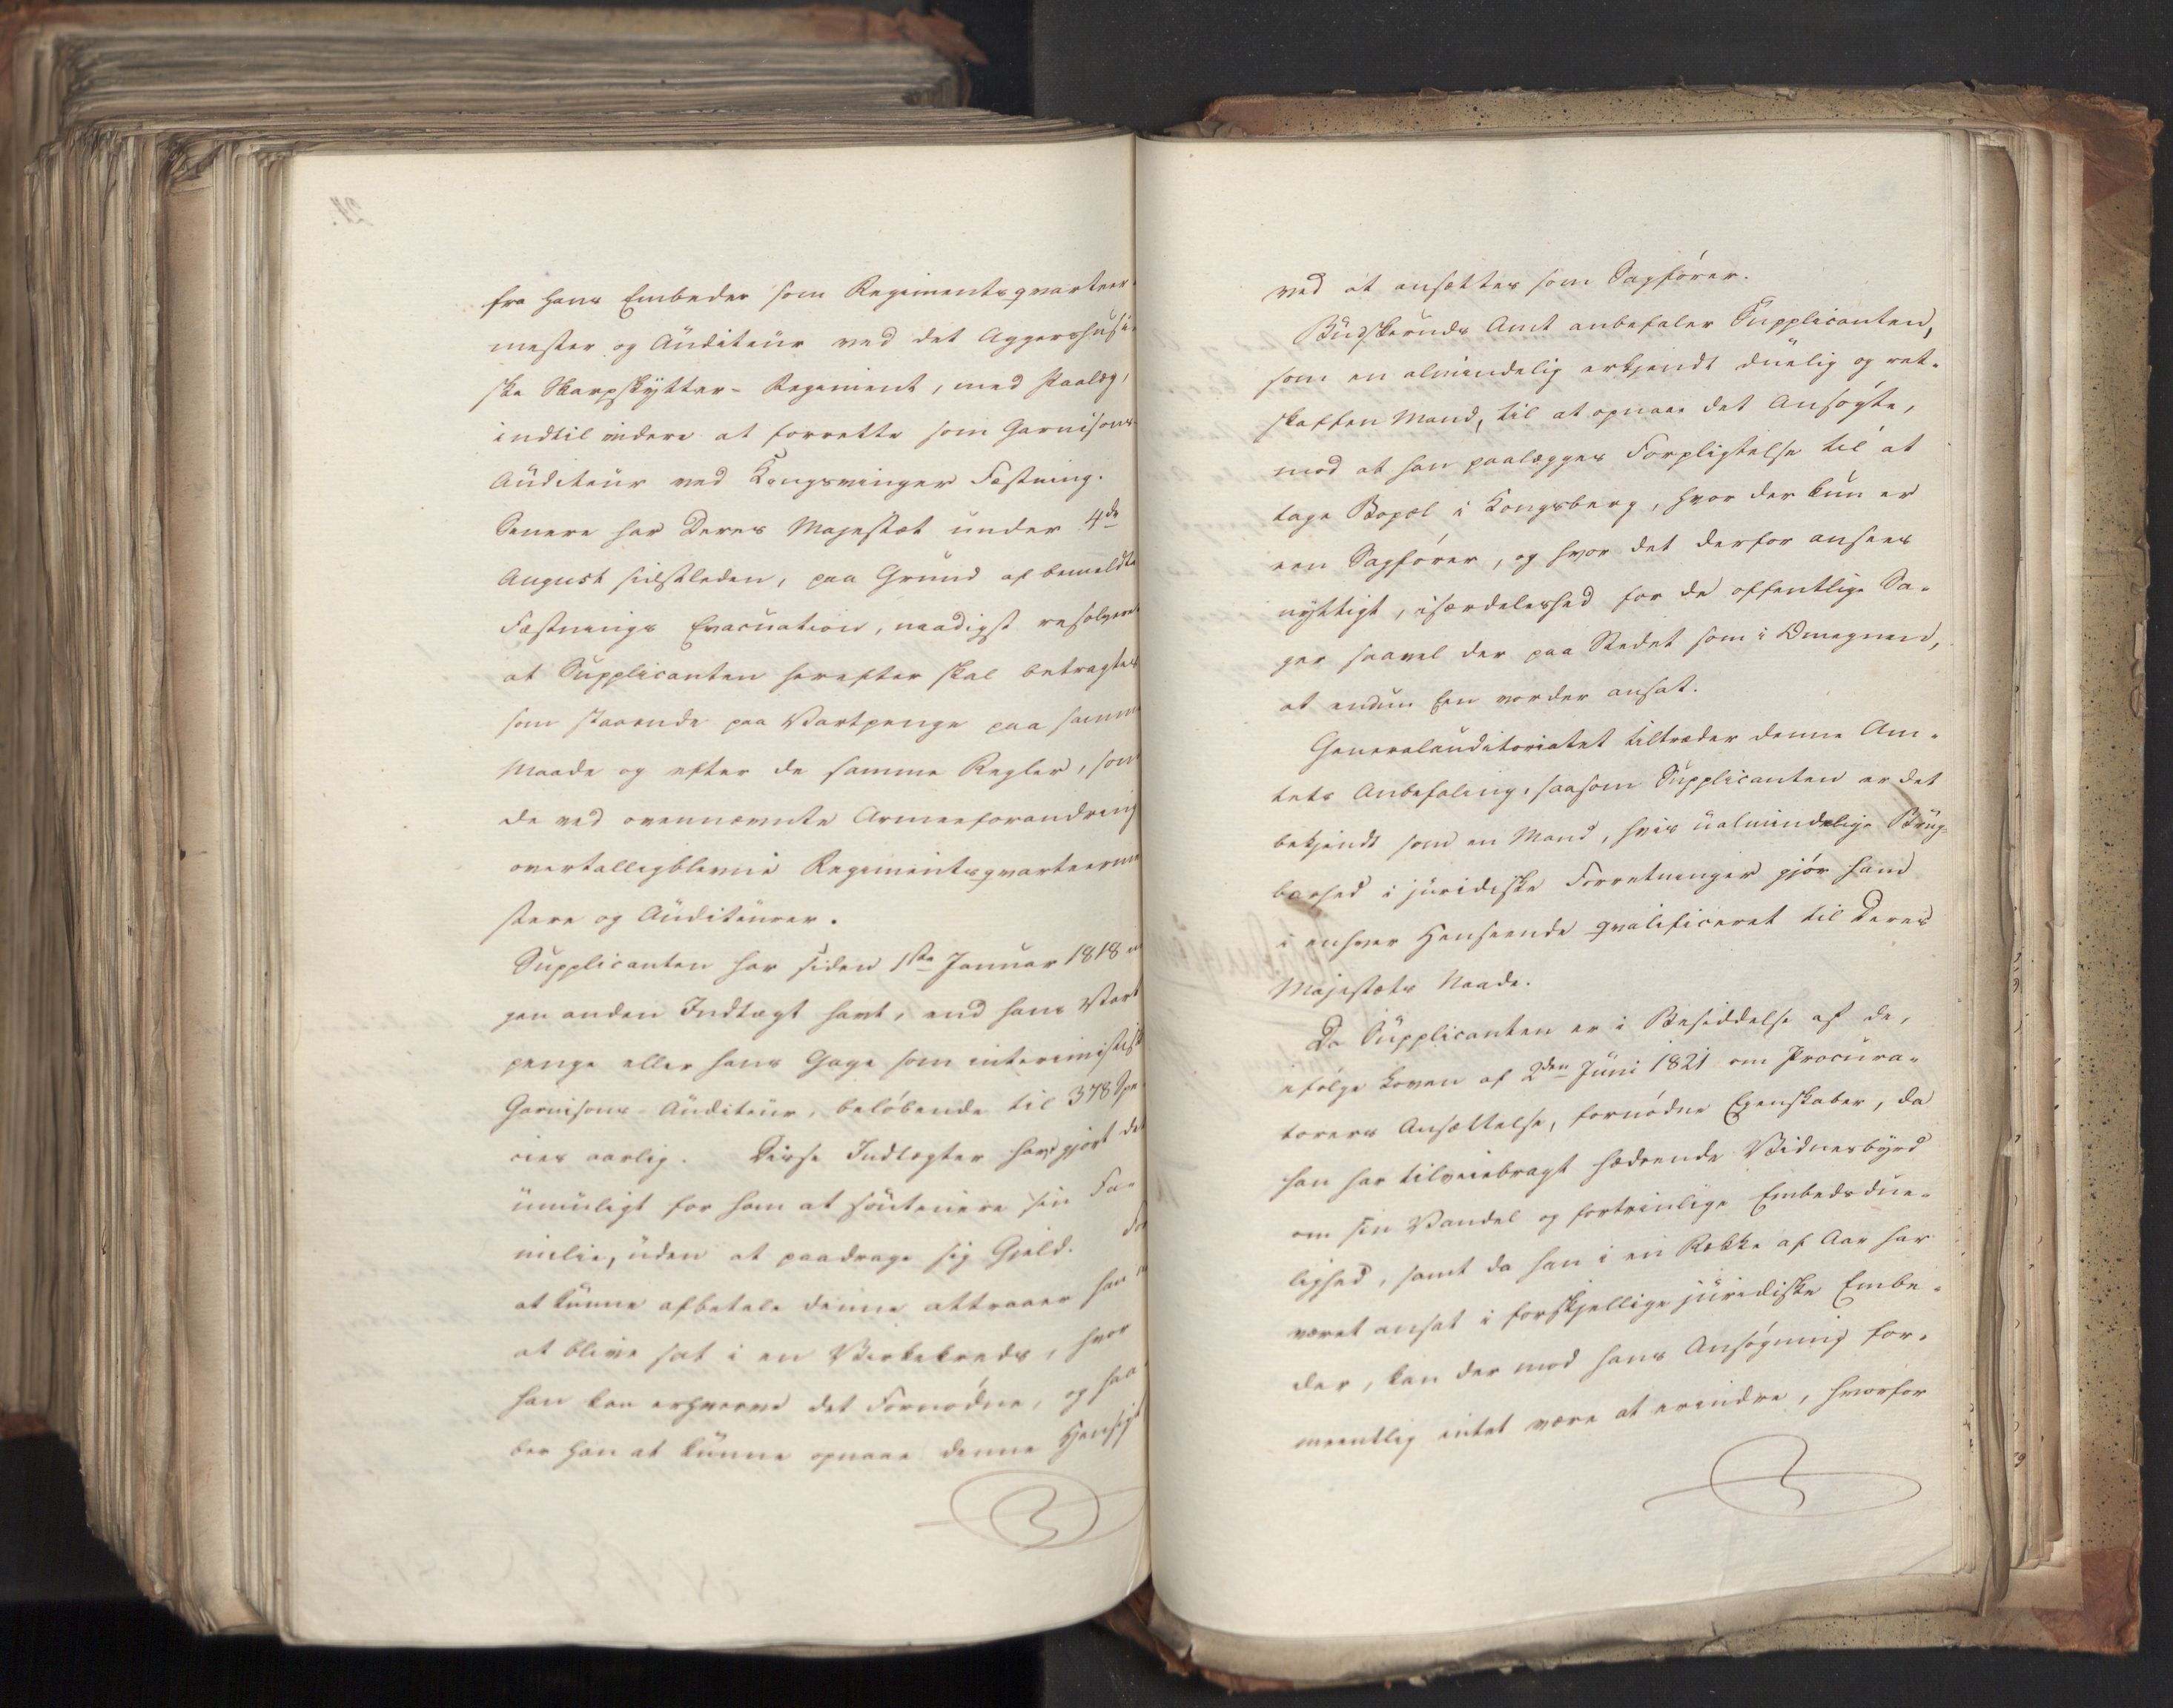 fra hans Embeder som Regimentsqvarteer-
mester og Auditeur ved det Aggershusi-
ske Skarpskytter-Regiment, med Paalæg,
indtil videre at forrette som Garnisons-
Auditeur ved Kongsvinger Fæstning.
Senere har Deres Majestæt under 4de
August sidstleden, paa Grund af bemeldte
Fæstnings Evacuation, naadigst resolveret
at Supplicanten herefter skal betragtes
som staaende paa Vartpenge paa samme
Maade og efter de samme Regler, som
de ved ovennævnte Armeeforandring
overtalligblevne Regimentsqvarteerme
stere og Auditeurer.
Supplicanten har siden 1ste Januar 1818 in
gen anden Indtægt havt, end hans Vart
penge eller hans Gage som interimistisk
Garnisons-Auditeur, beløbende til 378 Spe
cies aarlig. Disse Indtægter have gjort det
umuligt for ham at soutenere sin Fa-
milie, uden at paadrage sig Gjeld. For
at kunne afbetale denne attraaer han
at blive sat i en Virkekreds, hvor
han kan erhverve det Fornødne, og haa
ber han at kunne opnaae denne Hensigt
ved at ansættes som Sagfører.
Budskeruds Amt anbefaler Supplicanten,
som en almindelig erkjendt duelig og ret-
skaffen Mand, til at opnaae det Ansøgte,
mod at han paalægges Forpligtelse til at
tage Bopæl i Kongsberg, hvor der kun er
een Sagfører, og hvor det derfor ansees
nyttigt, isærdeleshed for de offentlige Sa-
ger saavel der paa Stedet som i Omegnen,
at endnu Een vorder ansat.
Generalauditoriatet tiltræder denne Am-
tets Anbefaling, saasom Supplicanten er det
bekjendt som en Mand, hvis ualmindelige Brug-
barhed i juridiske Forretninger gjør ham
i enhver Henseende qvalificeret til Deres
Majestæts Naade.
Da Supplicanten er i Besiddelse af de,
ifølge Loven af 2den Juni 1821 om Procura-
torers Ansættelse, fornødne Egenskaber, da
han har tilveiebragt hædrende Vidnesbyrd
om sin Vandel og fortrinlige Embedsdue-
lighed, samt da han i en Række af Aar har
været ansat i forskjellige juridiske Embe-
der, kan der mod hans Ansøgning for-
meentlig intet være at erindre, hvorfor